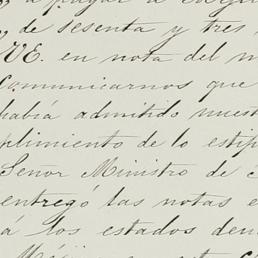 „ a pagar a
„ de sesenta y tres
VE. en nota del m
comunicarnos que
había admitido nuest
plimiento de lo estip
Señor Ministro de
entregó las notas e
á los estados den